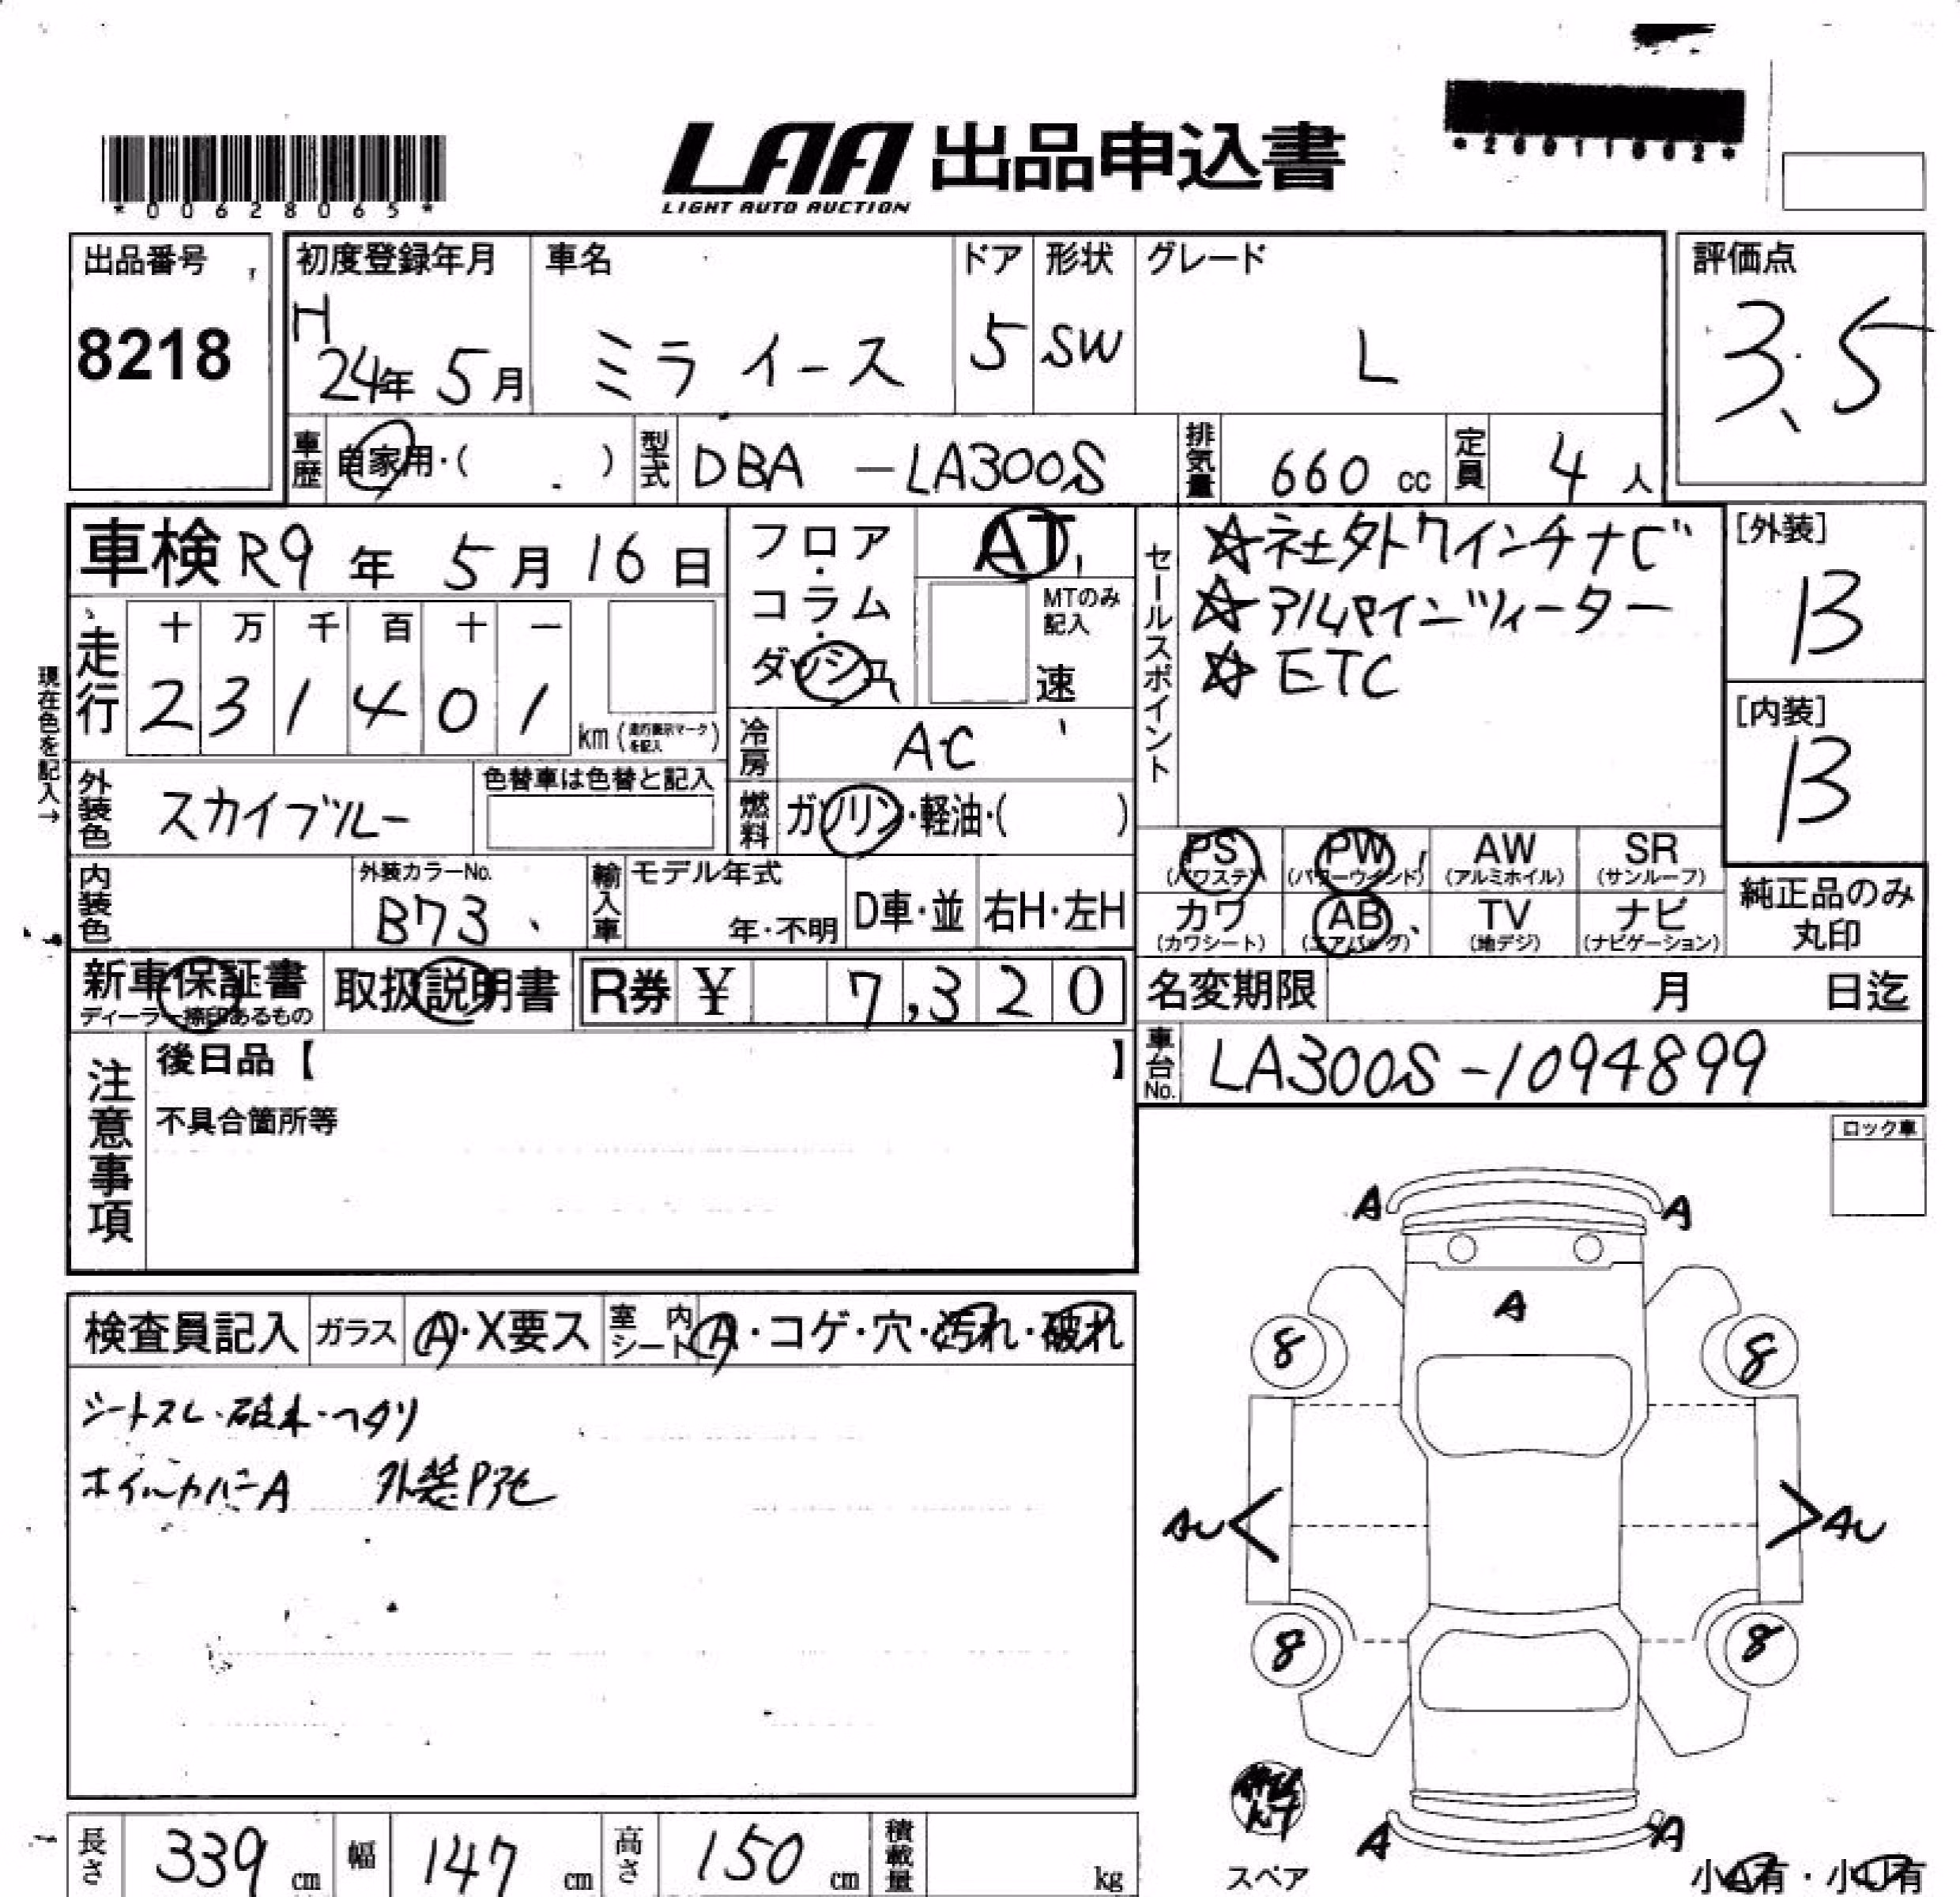 *00628065*
LAA 出品申込書
LIGHT AUTO AUCTION
出品番号
8218
初度登録年月
H
24年 5月
車名
ミライース
ドア
5
形状
SW
グレード
L
評価点
3.5
車歴
自家用・( )
型式
DBA -LA300S
排気量
660 cc
定員
4 人
車検 R9年 5月 16日
フロア・コラム・ダッシュ
AT
MTのみ記入
速
走行
十 万 千 百 十 一
2 3 1 4 0 1
km (走行表示マークを記入)
現在色を記入→
冷房
AC
外装色
スカイブルー
色替車は色替と記入
燃料
ガソリン・軽油・( )
セールスポイント
☆社外7インチナビ
☆アルパインツィーター
☆ETC
[外装]
B
[内装]
B
PS
(パワステ)
PW
(パワーウインド)
AW
(アルミホイル)
SR
(サンルーフ)
カワ
(カワシート)
AB
(エアバッグ)
TV
(地デジ)
ナビ
(ナビゲーション)
純正品のみ
丸印
内装色
外装カラーNo.
B73
輸入車
モデル年式
年・不明
D車・並
右H・左H
新車保証書
ディーラー捺印あるもの
取扱説明書
R券 ¥ 7,320
名変期限 月 日迄
車台No.
LA300S-1094899
注意事項
後日品【 】
不具合箇所等
ロック車
検査員記入
ガラス
A・X要ス
室内シート
A・コゲ・穴・汚れ・破れ
シートスレ・破れ・ヘタリ
ホイルカバーA 外装Pアセ
A A
A
8 8
AU AU
8 8
A A
スペア
小A有・小U有
長さ
339 cm
幅
147 cm
高さ
150 cm
積載量
kg